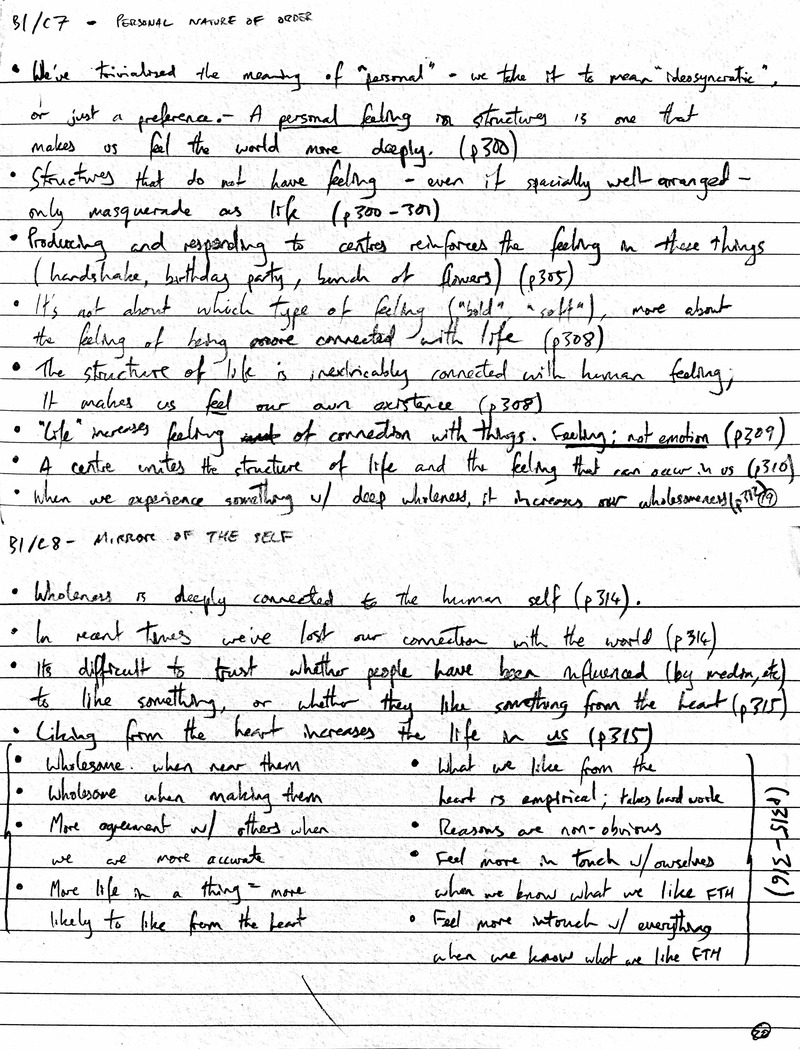 B1/C7 - PERSONAL NATURE OF ORDER
• We've trivialised the meaning of "personal" - we take it to mean "ideosyncratic",
or just a preference. - A personal feeling in structures is one that
makes us feel the world more deeply. (p300)
• Structures that do not have feeling - even if spacially well-arranged -
only masquerade as life (p300-301)
• Producing and responding to centres reinforces the feeling in these things
(handshake, birthday party, bunch of flowers) (p305)
• It's not about which type of feeling ("bold", "soft"), more about
the feeling of being more connected with life (p308)
• The structure of life is inextricably connected with human feeling;
It makes us feel our own existence (p308)
• "Life" increases feeling of connection with things. Feeling; not emotion (p309)
• A centre unites the structure of life and the feeling that can occur in us (p310)
• When we experience something w/ deep wholeness, it increases our wholesomeness (p312) 19
B1/C8 - MIRROR OF THE SELF
• Wholeness is deeply connected to the human self (p314).
• In recent times we've lost our connection with the world (p314)
• Its difficult to trust whether people have been influenced (by media, etc)
to like something, or whether they like something from the heart (p315)
• Liking from the heart increases the life in us (p315)
• Wholesome when near them
• Wholesome when making them
• More agreement w/ others when
we are more accurate
• More life in a thing = more
likely to like from the heart
• What we like from the
heart is empirical; takes hard work
• Reasons are non-obvious
• Feel more in touch w/ ourselves
when we know what we like FTH
• Feel more intouch w/ everything
when we know what we like FTH
(p315-316)
20